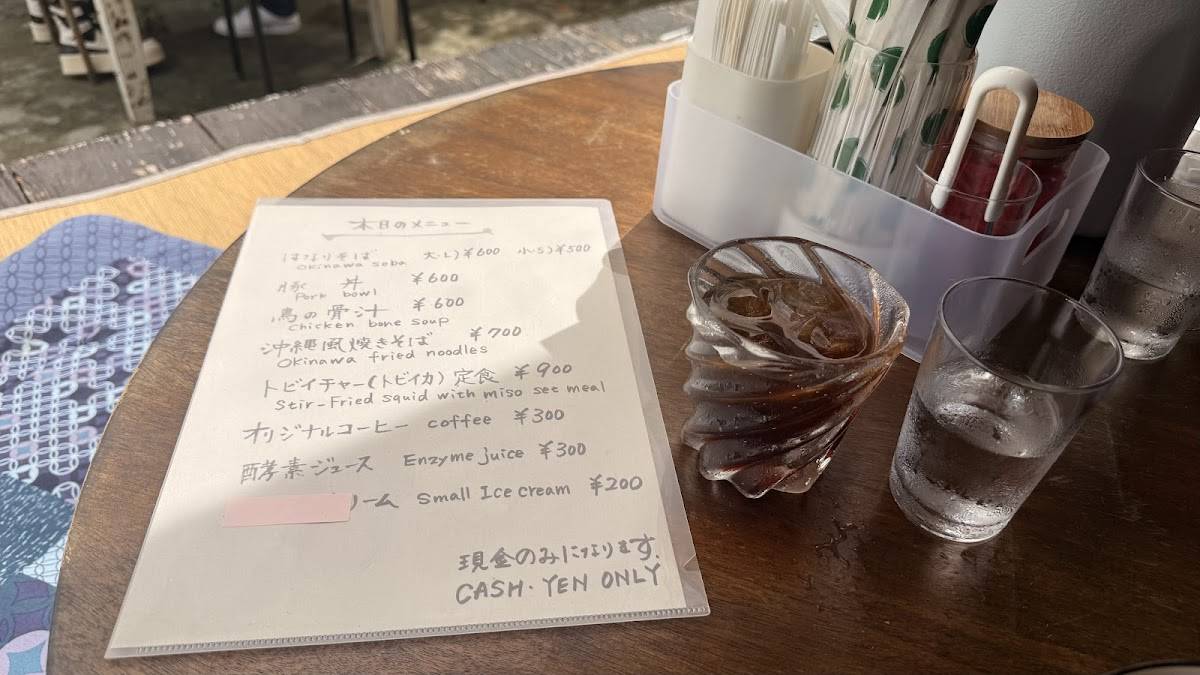 本日のメニュー
はなりそば 大(L)¥600 小(S)¥500
Okinawa soba
豚丼 ¥600
Pork bowl
鳥の骨汁 ¥600
Chicken bone soup
沖縄風焼きそば ¥700
Okinawa fried noodles
トビイチャー(トビイカ)定食 ¥900
Stir-Fried squid with miso set meal
オリジナルコーヒー coffee ¥300
酵素ジュース Enzyme juice ¥300
リーム Small Ice cream ¥200
現金のみになります.
CASH・YEN ONLY